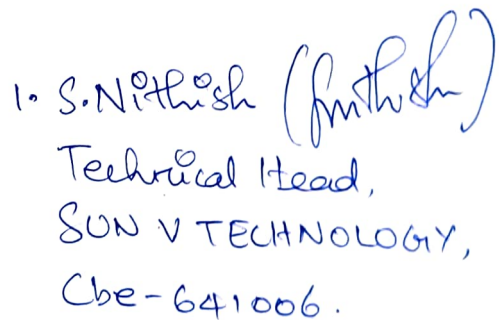 1. S.Nithish
Technical Head,
SUN V TECHNOLOGY,
Cbe-641006.